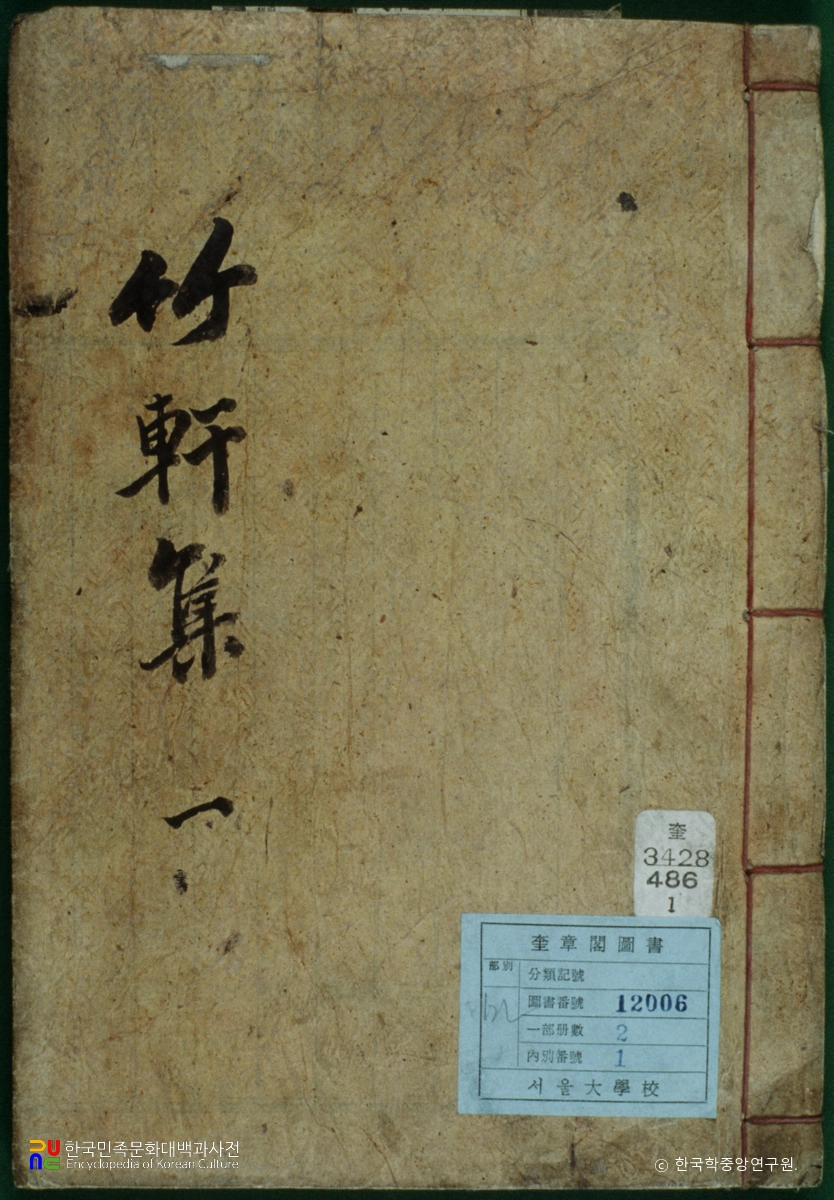 竹軒集 一
奎
3428
486
1
奎章閣圖書
部別
分類記號
圖書番號 12006
一部册數 2
內別番號 1
서울大學校
한국민족문화대백과사전
Encyclopedia of Korean Culture
ⓒ 한국학중앙연구원